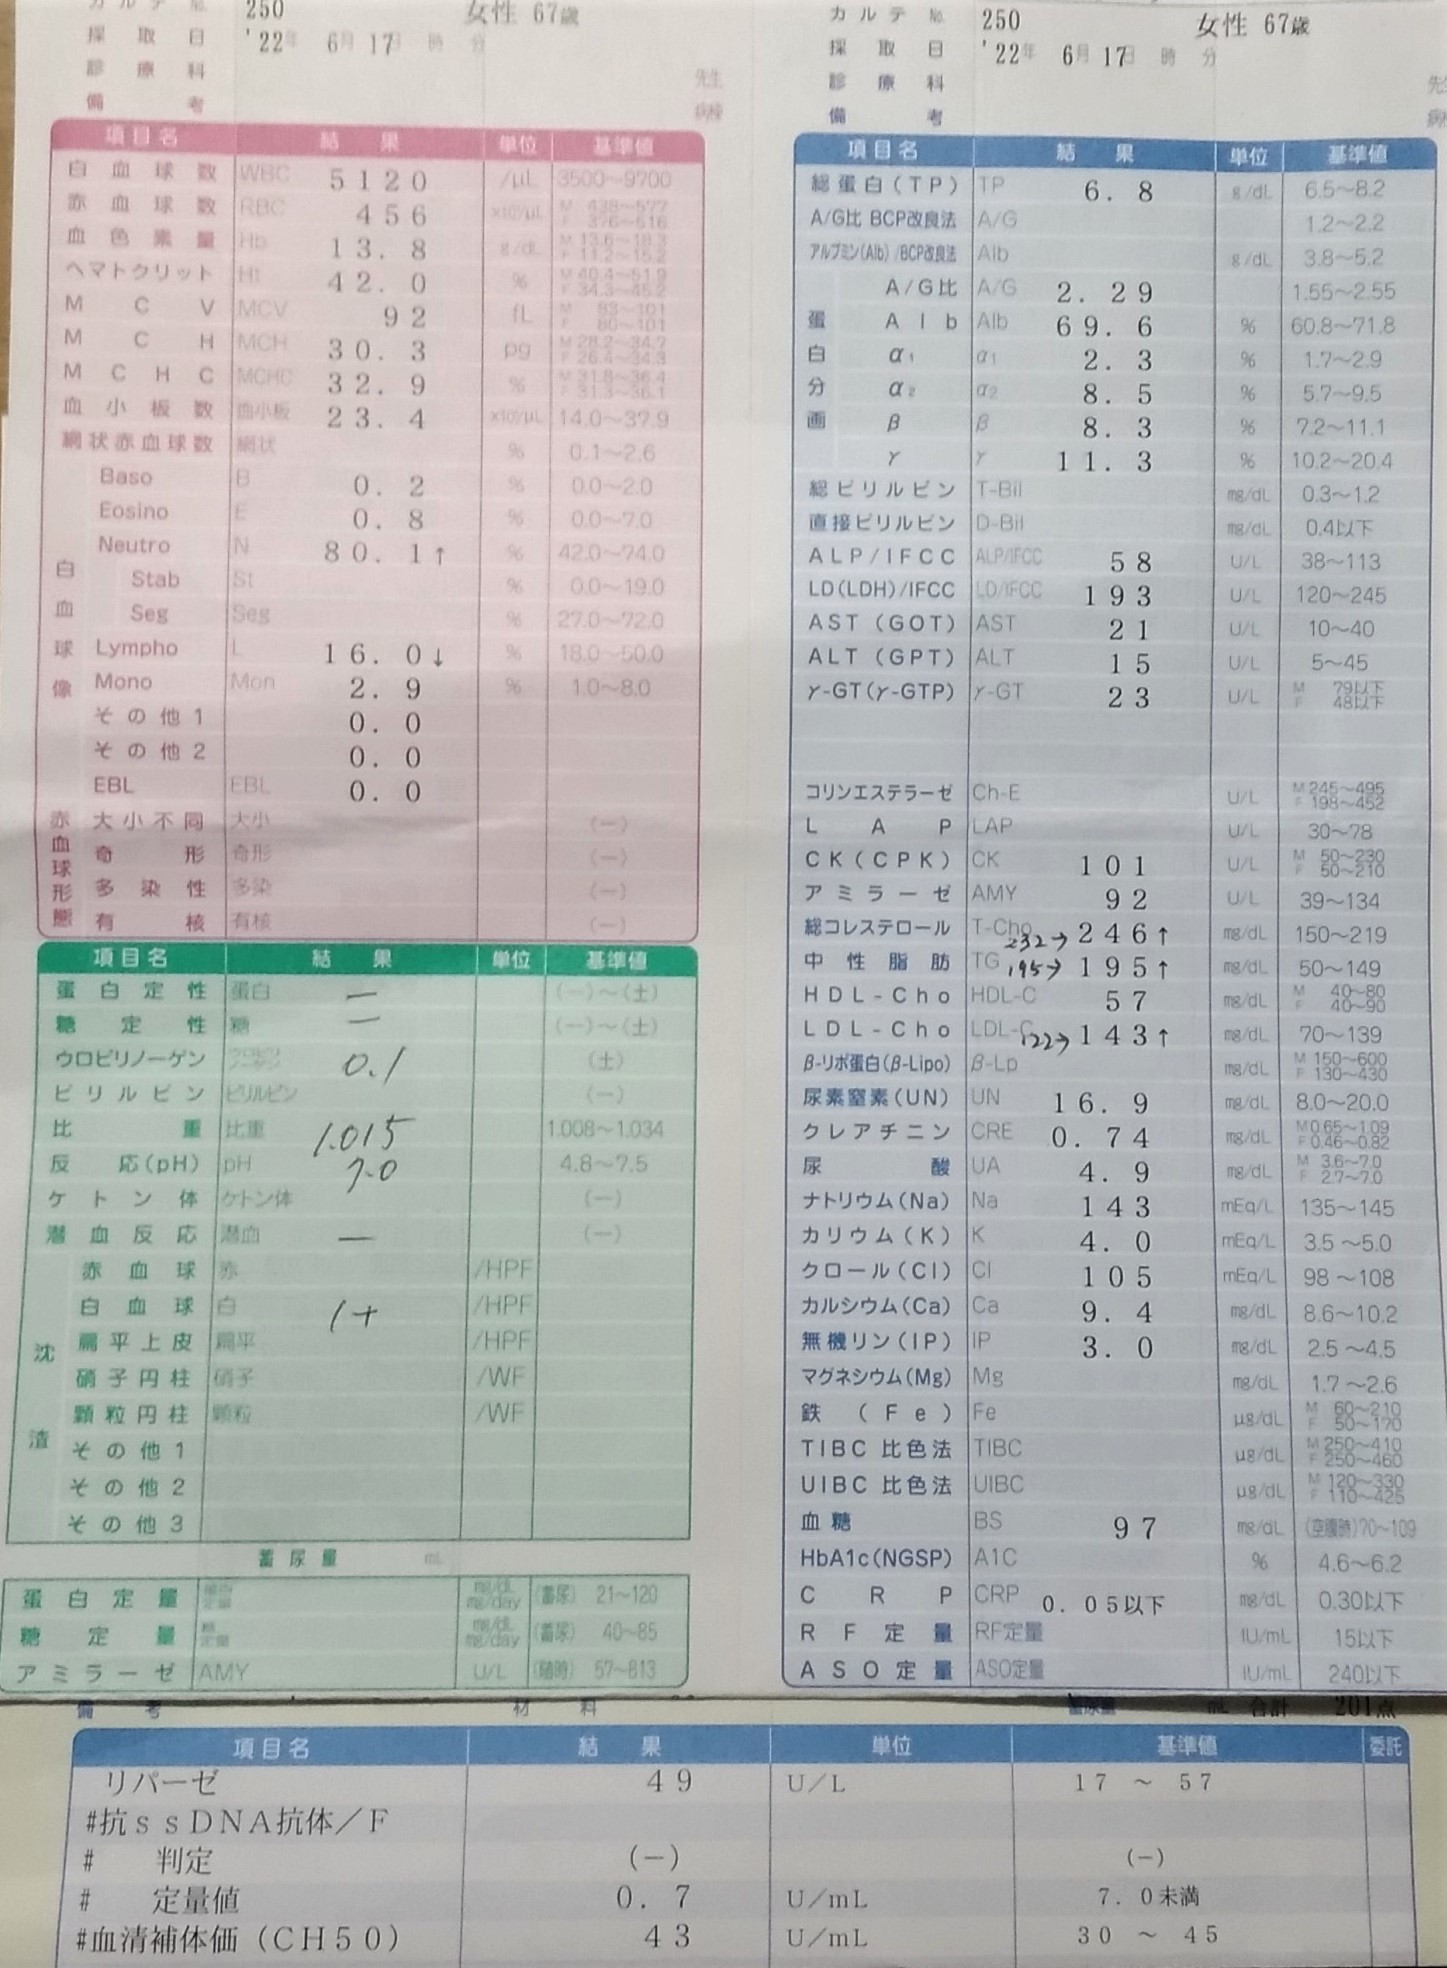 カルテ № 250 女性 67歳
採取日 '22年 6月 17日 時 分
診療科 先生
備考 病棟
項目名 結果 単位 基準値
白血球数 WBC 5120 /μL 3500～9700
赤血球数 RBC 456 ×10⁴/μL M 438～577 F 376～516
血色素量 Hb 13.8 g/dL M 13.6～18.3 F 11.2～15.2
ヘマトクリット Ht 42.0 % M 40.4～51.9 F 34.3～45.2
MCV MCV 92 fL M 83～101 F 80～101
MCH MCH 30.3 pg M 28.2～34.7 F 26.4～34.3
MCHC MCHC 32.9 % M 31.8～36.4 F 31.3～36.1
血小板数 血小板 23.4 ×10⁴/μL 14.0～37.9
網状赤血球数 網状 % 0.1～2.6
白血球像
Baso B 0.2 % 0.0～2.0
Eosino E 0.8 % 0.0～7.0
Neutro N 80.1↑ % 42.0～74.0
Stab St % 0.0～19.0
Seg Seg % 27.0～72.0
Lympho L 16.0↓ % 18.0～50.0
Mono Mon 2.9 % 1.0～8.0
その他1 0.0
その他2 0.0
EBL EBL 0.0
赤血球形態
大小不同 大小 (－)
奇形 奇形 (－)
多染性 多染 (－)
有核 有核 (－)
項目名 結果 単位 基準値
蛋白定性 蛋白 － (－)～(±)
糖定性 糖 － (－)～(±)
ウロビリノーゲン 0.1 (±)
ビリルビン ビリルビン (－)
比重 比重 1.015 1.008～1.034
反応(pH) pH 7.0 4.8～7.5
ケトン体 ケトン体 (－)
潜血反応 潜血 － (－)
沈渣
赤血球 赤 /HPF
白血球 白 1+ /HPF
扁平上皮 扁平 /HPF
硝子円柱 硝子 /WF
顆粒円柱 顆粒 /WF
その他1
その他2
その他3
蓄尿量 mL
蛋白定量 蛋白定量 mg/dL mg/day (蓄尿) 21～120
糖定量 糖定量 mg/dL mg/day (蓄尿) 40～85
アミラーゼ AMY U/L (随時) 57～813
カルテ № 250 女性 67歳
採取日 '22年 6月 17日 時 分
診療科 先生
備考 病棟
項目名 結果 単位 基準値
総蛋白(TP) TP 6.8 g/dL 6.5～8.2
A/G比 BCP改良法 A/G 1.2～2.2
アルブミン(Alb)/BCP改良法 Alb g/dL 3.8～5.2
蛋白分画
A/G比 A/G 2.29 1.55～2.55
Alb Alb 69.6 % 60.8～71.8
α₁ α₁ 2.3 % 1.7～2.9
α₂ α₂ 8.5 % 5.7～9.5
β β 8.3 % 7.2～11.1
γ γ 11.3 % 10.2～20.4
総ビリルビン T-Bil mg/dL 0.3～1.2
直接ビリルビン D-Bil mg/dL 0.4以下
ALP/IFCC ALP/IFCC 58 U/L 38～113
LD(LDH)/IFCC LD/IFCC 193 U/L 120～245
AST(GOT) AST 21 U/L 10～40
ALT(GPT) ALT 15 U/L 5～45
γ-GT(γ-GTP) γ-GT 23 U/L M 79以下 F 48以下
コリンエステラーゼ Ch-E U/L M 245～495 F 198～452
LAP LAP U/L 30～78
CK(CPK) CK 101 U/L M 50～230 F 50～210
アミラーゼ AMY 92 U/L 39～134
総コレステロール T-Cho 232→ 246↑ mg/dL 150～219
中性脂肪 TG 195→ 195↑ mg/dL 50～149
HDL-Cho HDL-C 57 mg/dL M 40～80 F 40～90
LDL-Cho LDL-C 122→ 143↑ mg/dL 70～139
β-リポ蛋白(β-Lipo) β-Lp mg/dL M 150～600 F 130～430
尿素窒素(UN) UN 16.9 mg/dL 8.0～20.0
クレアチニン CRE 0.74 mg/dL M 0.65～1.09 F 0.46～0.82
尿酸 UA 4.9 mg/dL M 3.6～7.0 F 2.7～7.0
ナトリウム(Na) Na 143 mEq/L 135～145
カリウム(K) K 4.0 mEq/L 3.5～5.0
クロール(Cl) Cl 105 mEq/L 98～108
カルシウム(Ca) Ca 9.4 mg/dL 8.6～10.2
無機リン(IP) IP 3.0 mg/dL 2.5～4.5
マグネシウム(Mg) Mg mg/dL 1.7～2.6
鉄(Fe) Fe μg/dL M 60～210 F 50～170
TIBC 比色法 TIBC μg/dL M 250～410 F 250～460
UIBC 比色法 UIBC μg/dL M 120～330 F 110～425
血糖 BS 97 mg/dL (空腹時)70～109
HbA1c(NGSP) A1C % 4.6～6.2
CRP CRP 0.05以下 mg/dL 0.30以下
RF定量 RF定量 IU/mL 15以下
ASO定量 ASO定量 IU/mL 240以下
備考 材料 蓄尿量 mL 合計 201点
項目名 結果 単位 基準値 委託
リパーゼ 49 U/L 17 ～ 57
#抗ssDNA抗体/F
# 判定 (－) (－)
# 定量値 0.7 U/mL 7.0未満
#血清補体価(CH50) 43 U/mL 30 ～ 45